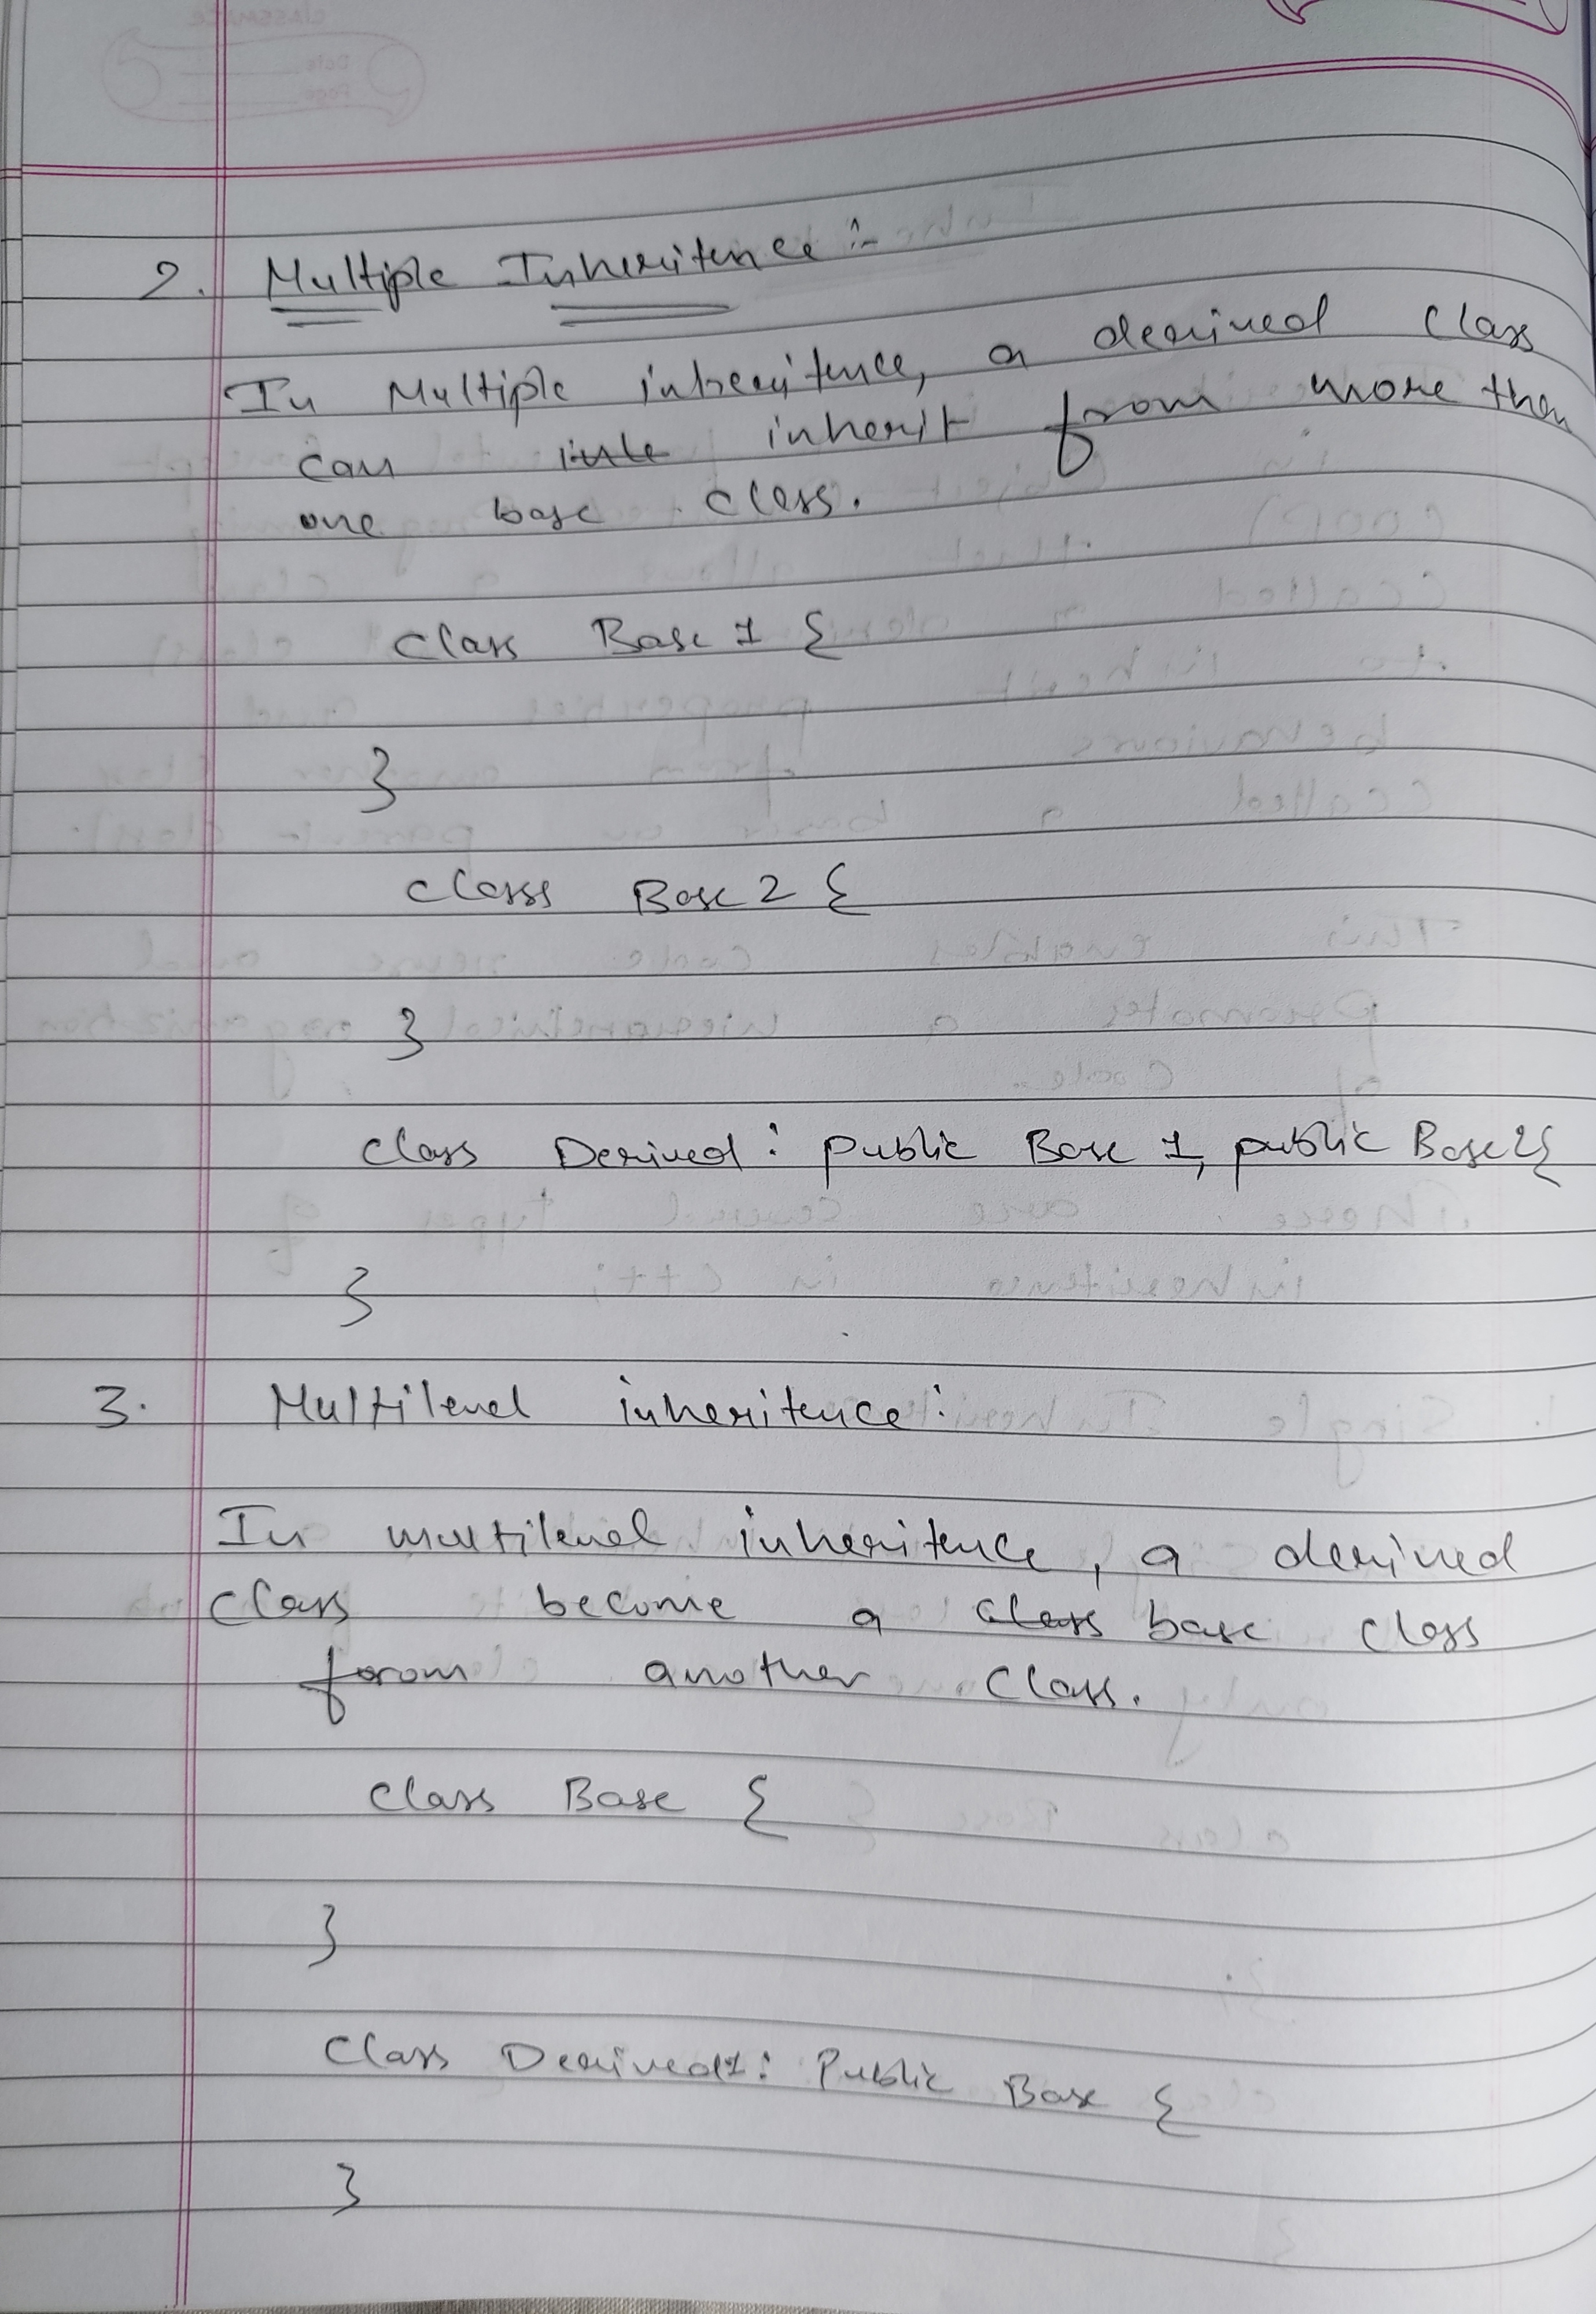 2. Multiple Inheritence :-
In Multiple inheritence, a derived class
can inhe inherit from more then
one base class.
class Base 1 {
}
class Base 2 {
}
class Derived : public Base 1, public Base 2 {
}
3. Multilevel inheritence :
In multilevel inheritence, a derived
class become a class base class
from another class.
class Base {
}
class Derived1 : Public Base {
}